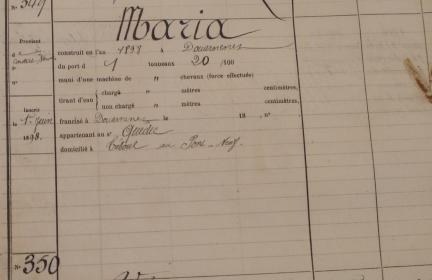 N° 349
Maria
Provenant
d
N°
construit en l'an 1898 à Douarnenez
du port de 1 tonneaux 20/100
muni d'une machine de " chevaux (force effectuée)
tirant d'eau { chargé " mètres centimètres,
non chargé " mètres centimètres,
Inscrit
le 1er Juin
1898.
francisé à Douarnenez le 18 , n°
appartenant au sr
domicilié à en Pont-
N° 350